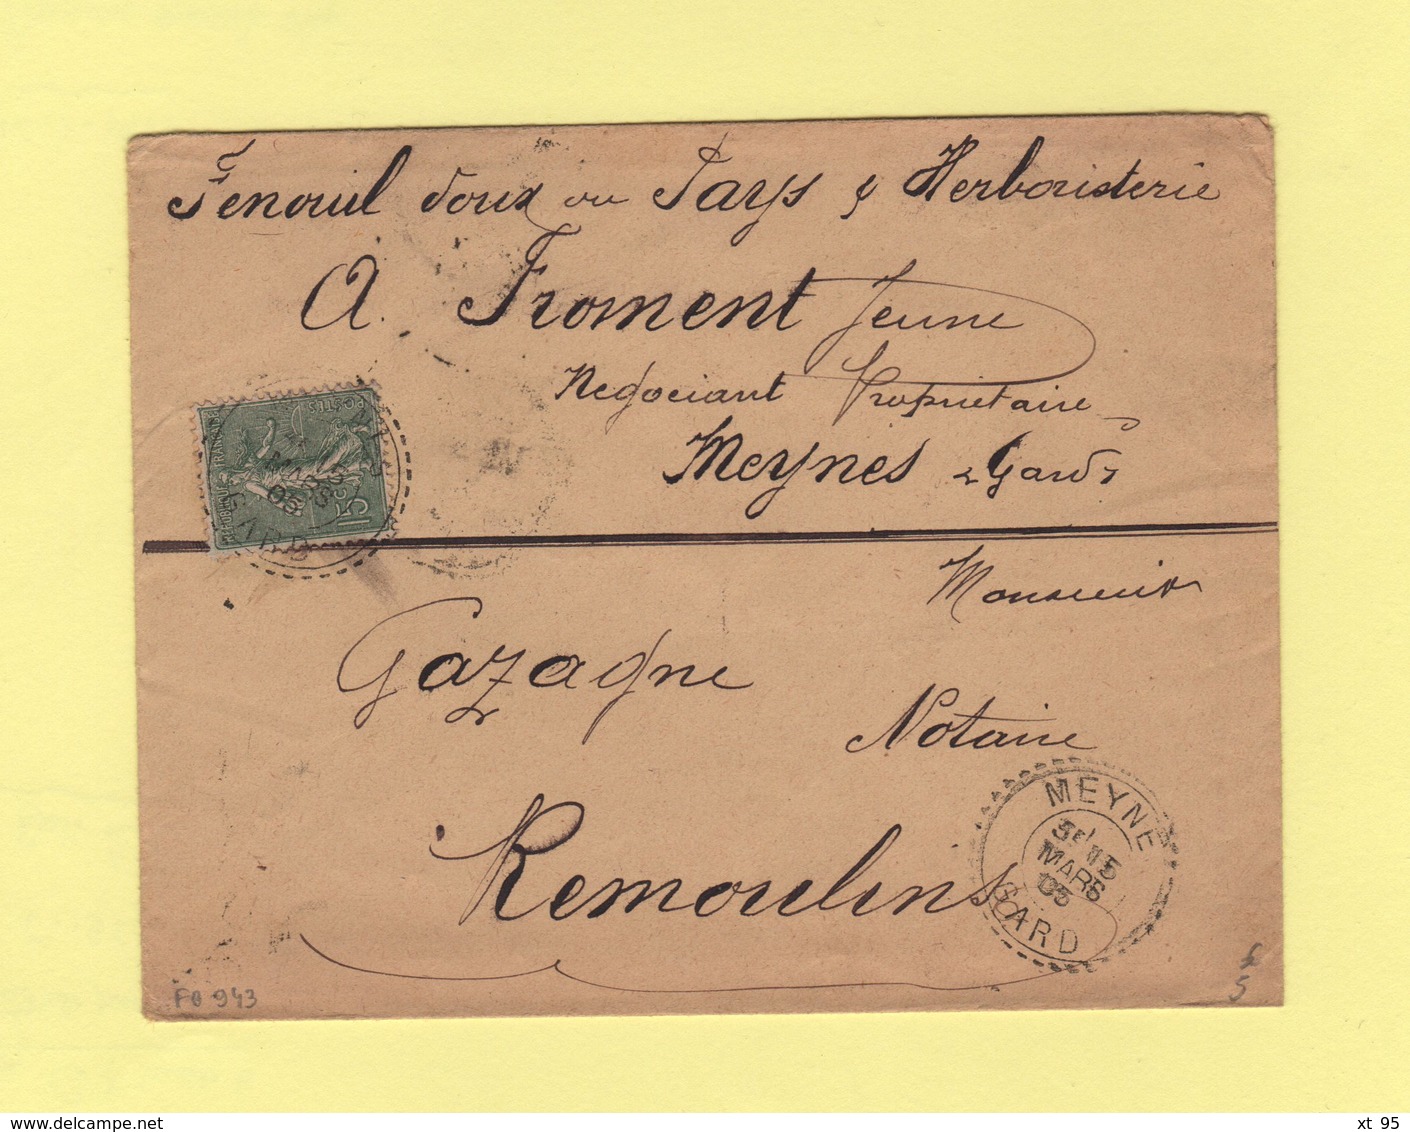 Fenouil doux ou Pays & Herboristerie
A. Froment Jeune
Negociant Propriétaire
Meynes Gard
REPUBLIQUE FRANCAISE
POSTES
15c
MARS
05
GARD
Monsieur
Gazagne
Notaire
Remoulins
MEYNE
3E 15
MARS
05
GARD
FO 943
5
www.delcampe.net
xt 95